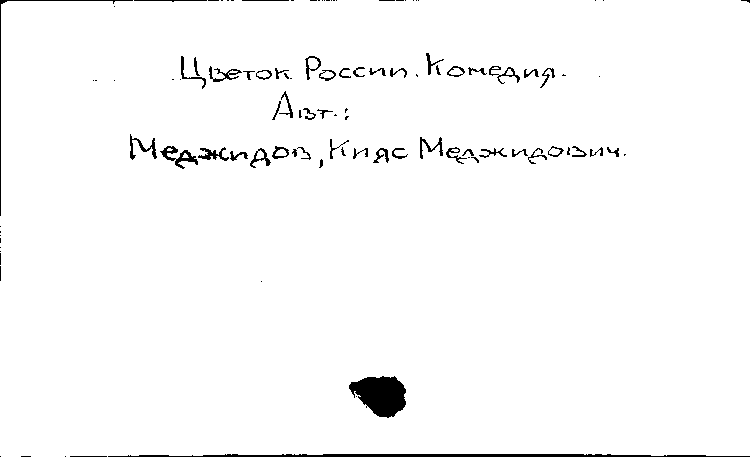 Цветок России. Комедия.
Авт.:
Меджидов, Кияс Меджидович.